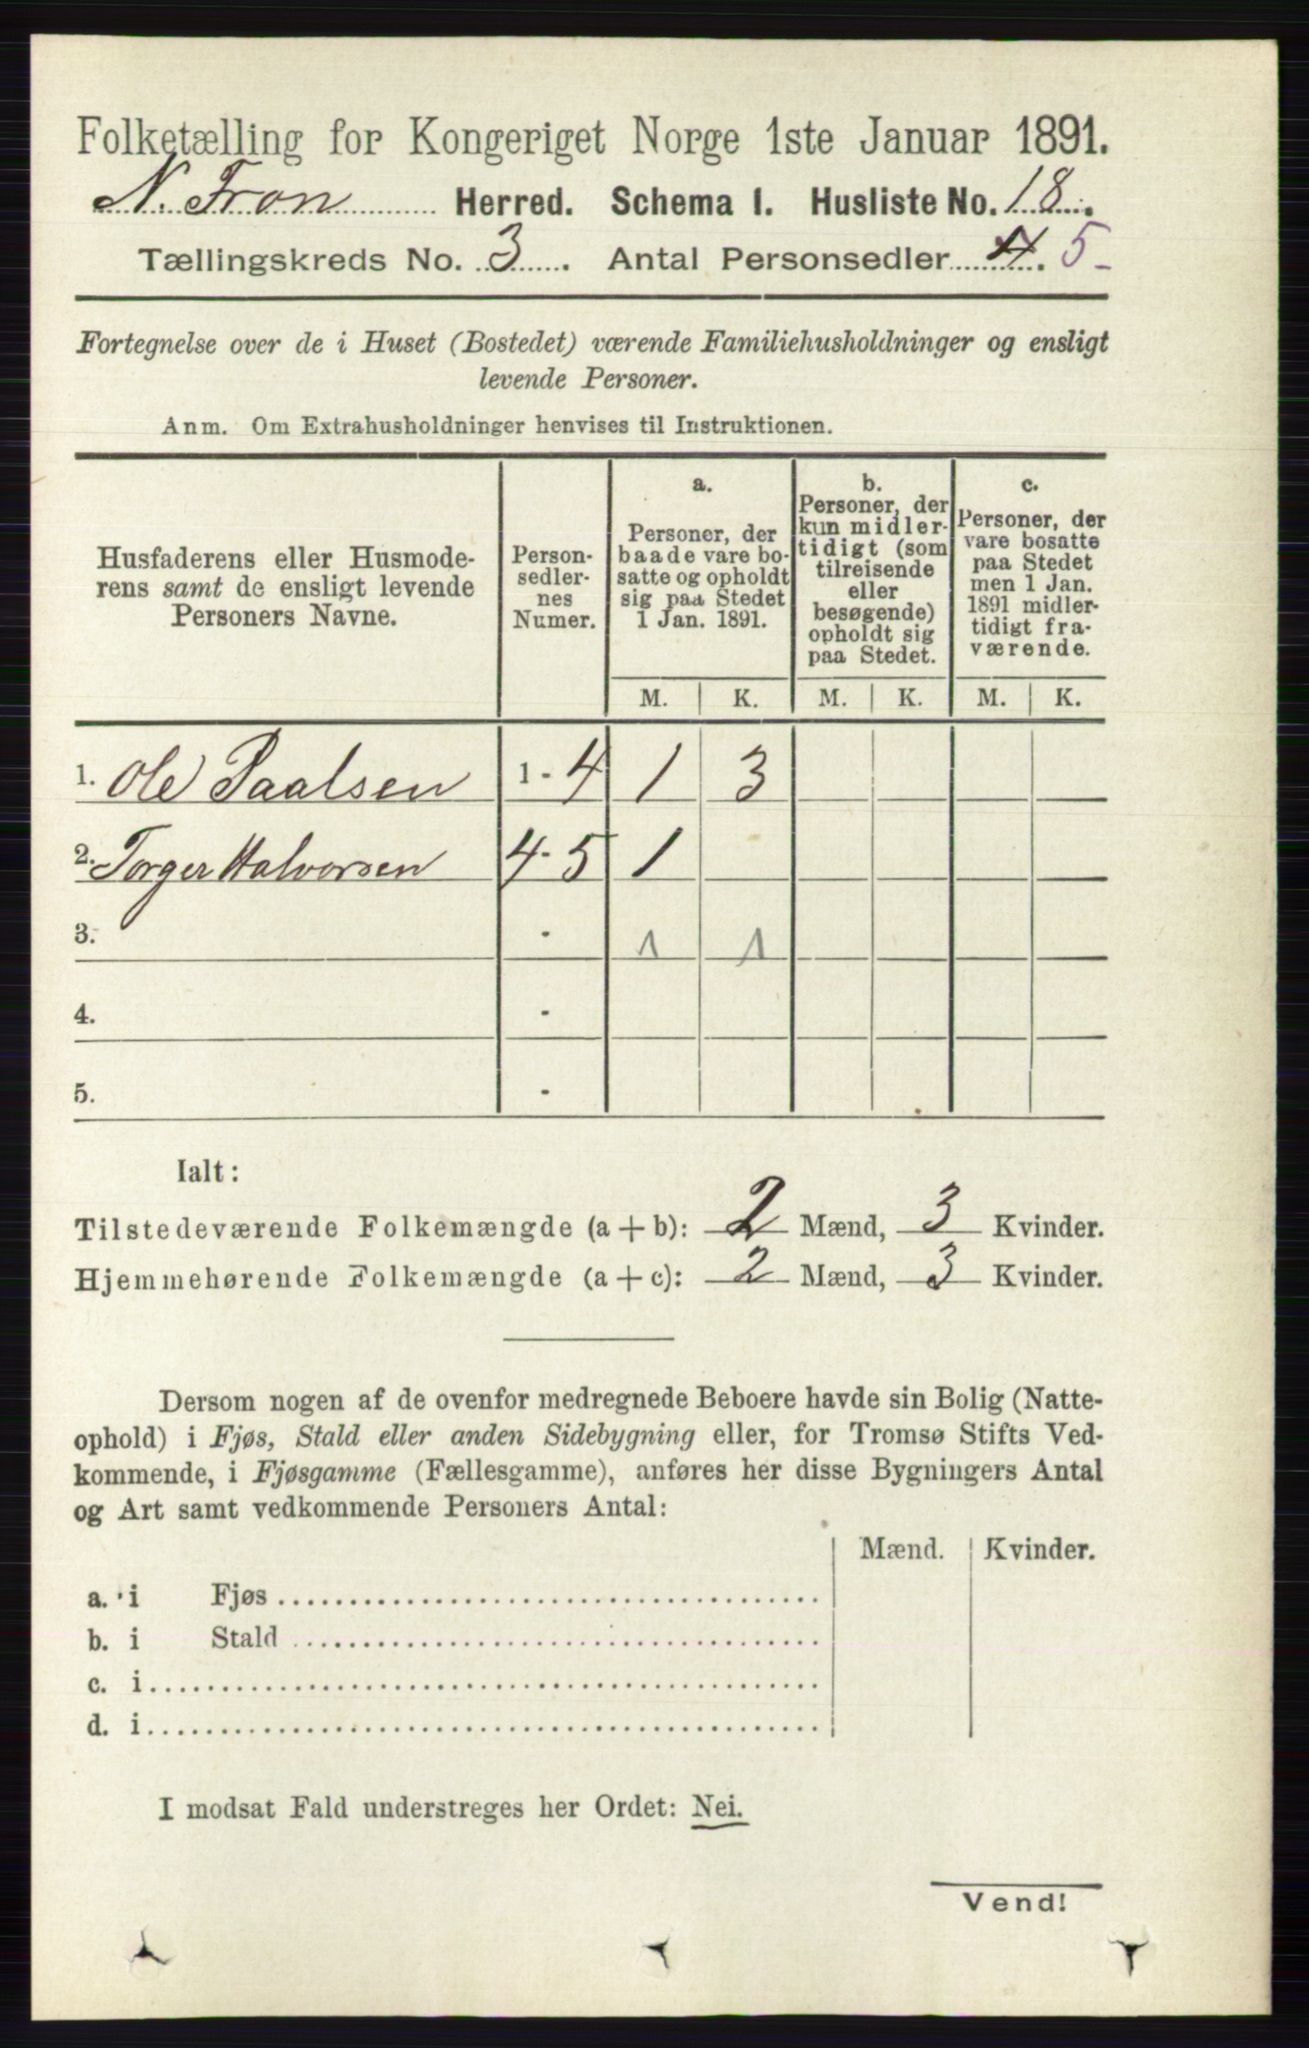 Folketælling for Kongeriget Norge 1ste Januar 1891.
N. Fron Herred. Schema I. Husliste No. 18.
Tællingskreds No. 3. Antal Personsedler 4. 5
Fortegnelse over de i Huset (Bostedet) værende Familiehusholdninger og ensligt
levende Personer.
Anm. Om Extrahusholdninger henvises til Instruktionen.
Husfaderens eller Husmode-
rens samt de ensligt levende
Personers Navne.
Person-
sedler-
nes
Numer.
a.
Personer, der
baade vare bo-
satte og opholdt
sig paa Stedet
1 Jan. 1891.
b.
Personer, der
kun midler-
tidigt (som
tilreisende
eller
besøgende)
opholdt sig
paa Stedet.
c.
Personer, der
vare bosatte
paa Stedet
men 1 Jan.
1891 midler-
tidigt fra-
værende.
M. K. M. K. M. K.
1. Ole Paalsen 1 - 4 1 3
2. Torger Halvorsen 4 - 5 1
3. - 1 1
4. -
5. -
Ialt:
Tilstedeværende Folkemængde (a + b): 2 Mænd, 3 Kvinder.
Hjemmehørende Folkemængde (a + c): 2 Mænd, 3 Kvinder.
Dersom nogen af de ovenfor medregnede Beboere havde sin Bolig (Natte-
ophold) i Fjøs, Stald eller anden Sidebygning eller, for Tromsø Stifts Ved-
kommende, i Fjøsgamme (Fællesgamme), anføres her disse Bygningers Antal
og Art samt vedkommende Personers Antal:
Mænd. Kvinder.
a. i Fjøs
b. i Stald
c. i
d. i
I modsat Fald understreges her Ordet: Nei.
Vend!